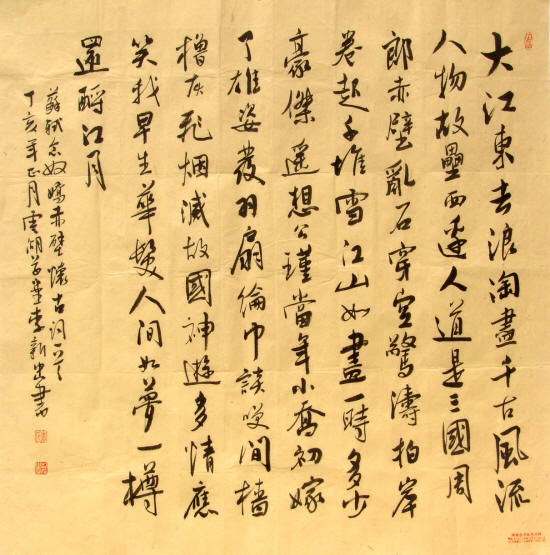 大江東去浪淘盡千古風流
人物故壘西邊人道是三國周
郎赤壁亂石穿空驚濤拍岸
卷起千堆雪江山如畫一時多少
豪傑遥想公瑾當年小喬初嫁
了雄姿發羽扇綸巾談笑間檣
櫓灰飛烟滅故國神遊多情應
笑我早生華髮人间如夢一樽
還酹江月
蘇軾念奴嬌赤壁懷古詞一首
丁亥年正月雲湖草堂李新書